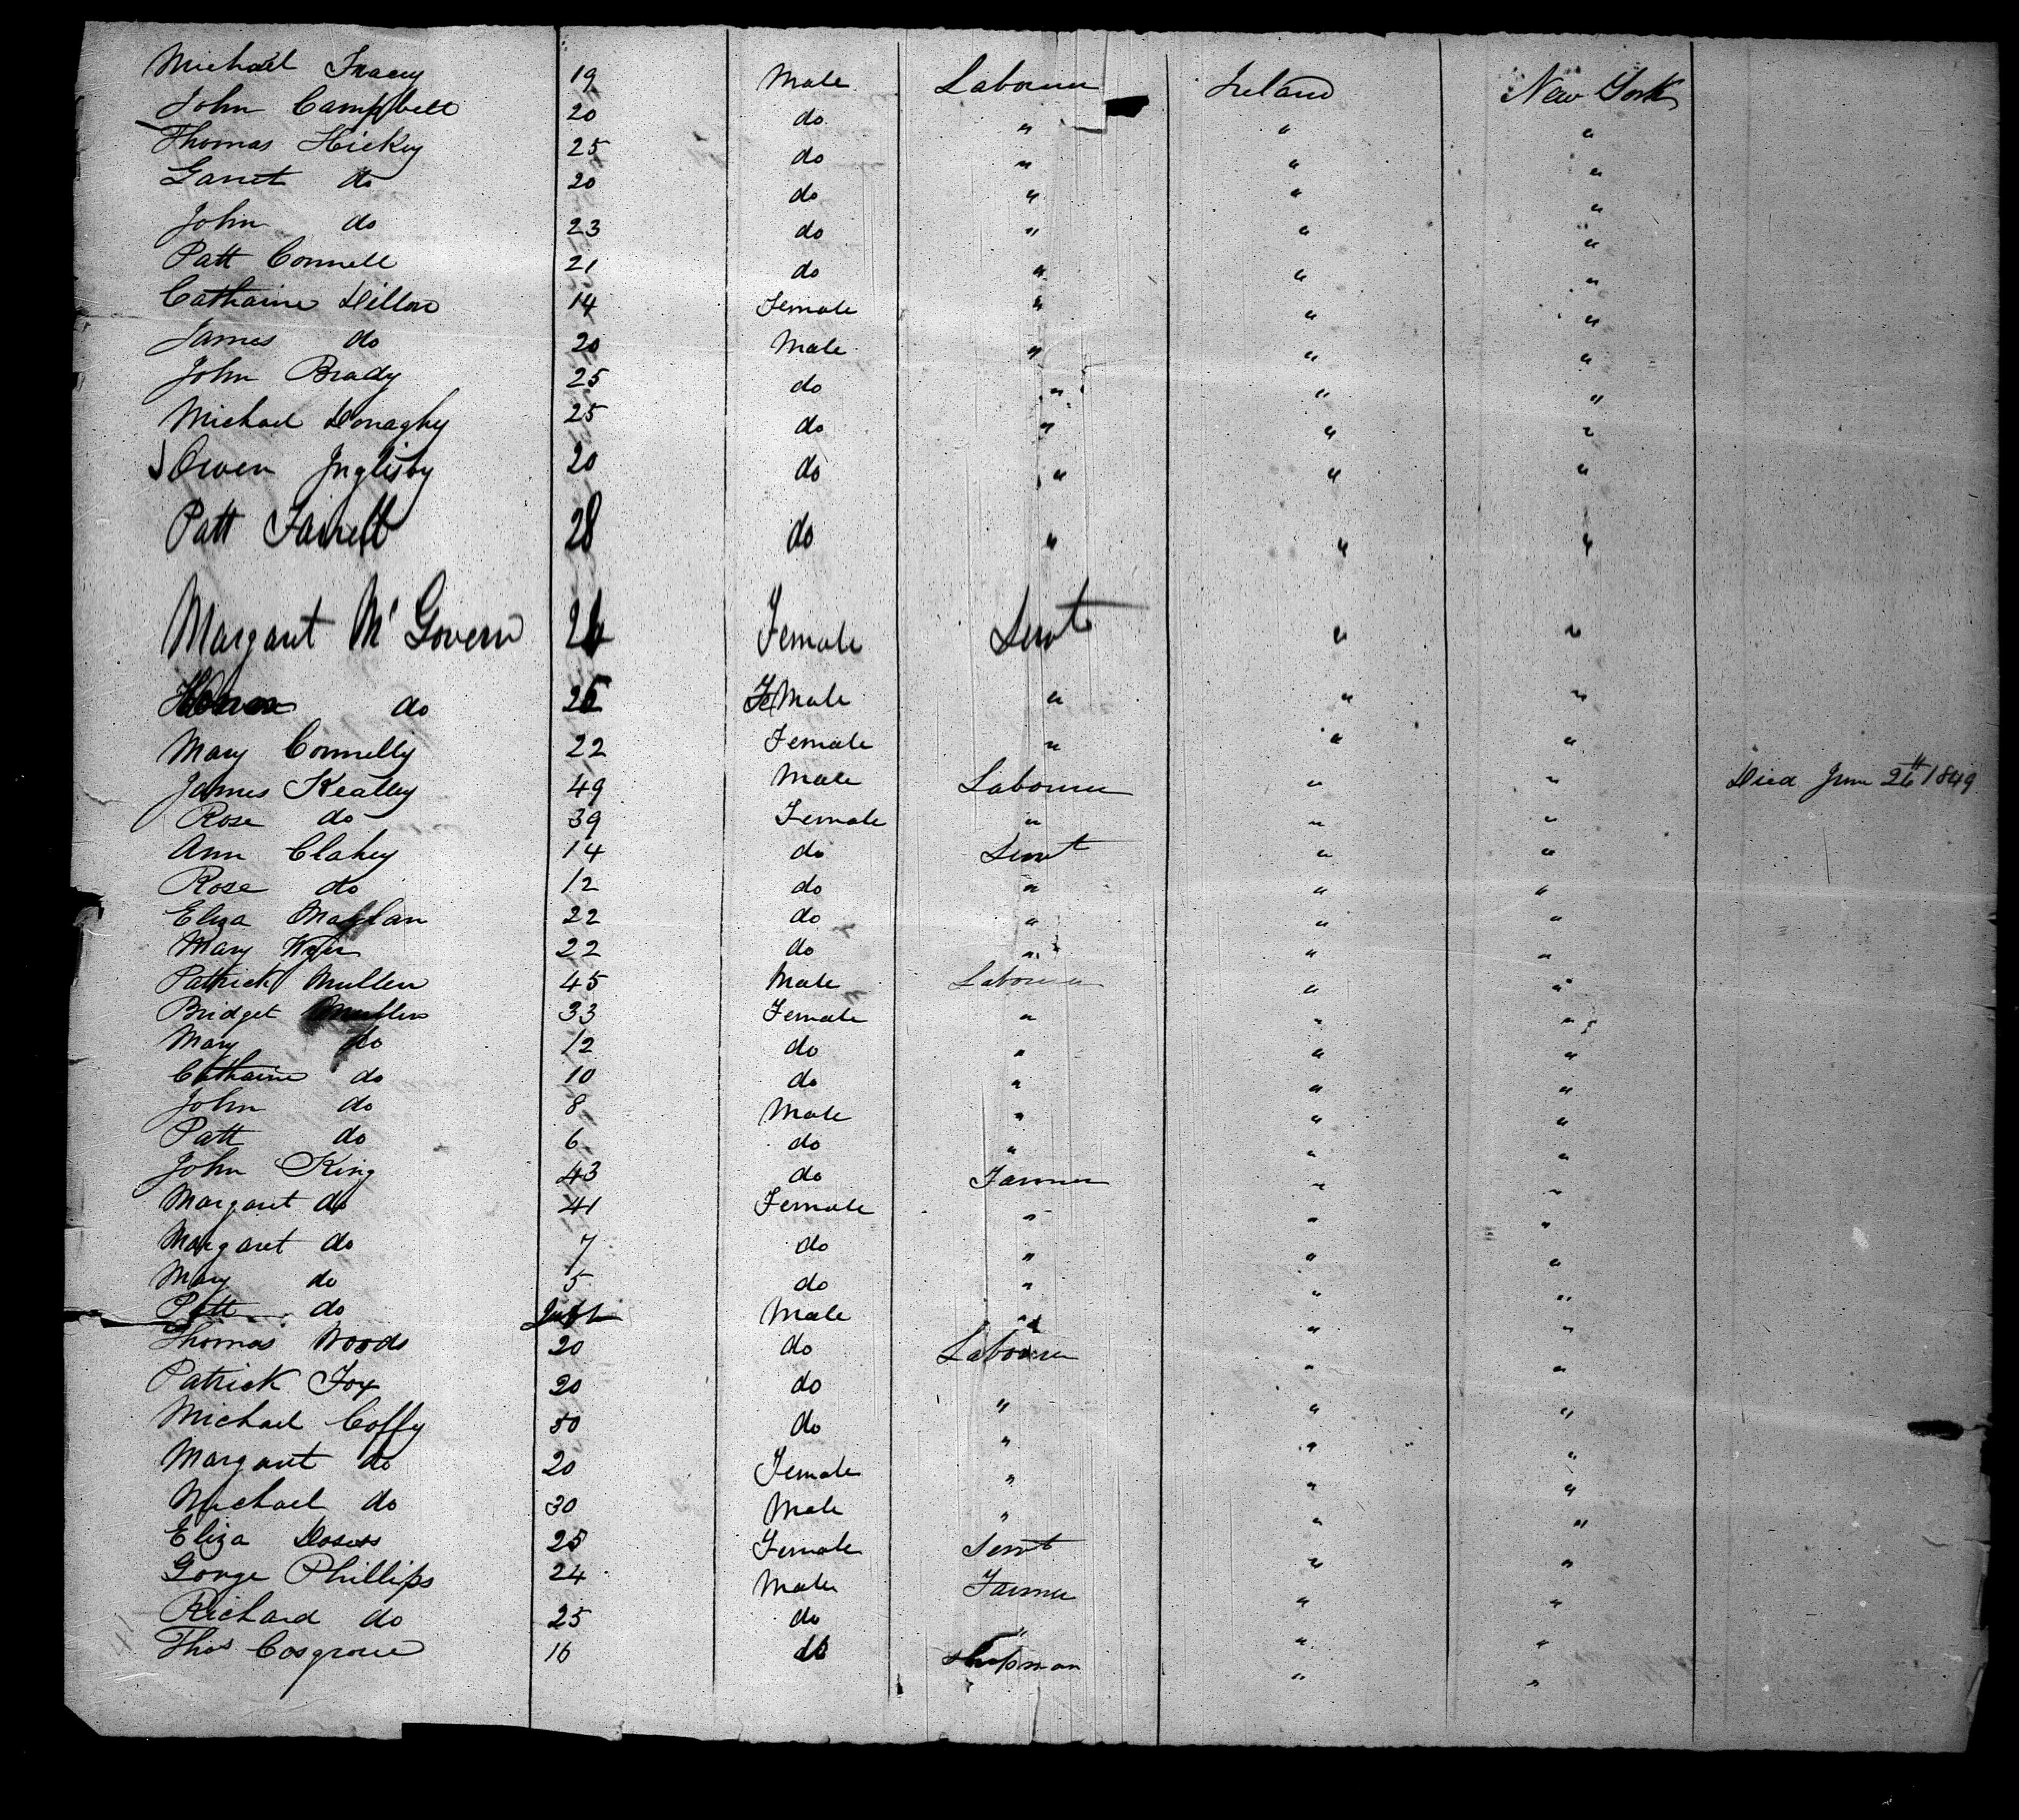 Michael Tracey 19 Male Labourer Ireland New York
John Campbell 20 do " " "
Thomas Hickey 25 do " " "
Garret do 20 do " " "
John do 23 do " " "
Patt Connell 21 do " " "
Catharine Dillon 14 Female " " "
James do 20 Male " " "
John Brady 25 do " " "
Michael Donaghy 25 do " " "
Owen Inglisby 20 do " " "
Patt Farrell 28 do " " "
Margaret McGovern Female Servt " "
do Male " " "
Mary Connelly 22 Female " " "
James Keatley 49 Male Labourer " " Died June 26th 1849
Rose do 39 Female " " "
Ann Clahey 14 do Servt " "
Rose do 12 do " " "
Eliza 22 do " " "
Mary 22 do " " "
Patrick Mullen 45 Male Labourer " "
Bridget Mullen 33 Female " " "
Mary do 12 do " " "
Catharine do 10 do " " "
John do 8 Male " " "
Patt do 6 do " " "
John King 43 do Farmer " "
Margaret do 41 Female " " "
Margaret do 7 do " " "
Mary do 5 do " " "
Patt do Male " " "
Thomas Woods 20 do Labourer " "
Patrick Fox 20 do " " "
Michael Coffy 50 do " " "
Margaret do 20 Female " " "
Michael do 30 Male " " "
Eliza 25 Female Servt " "
George Phillips 24 Male Farmer " "
Richard do 25 do " " "
Thos Cosgrove 16 do " "